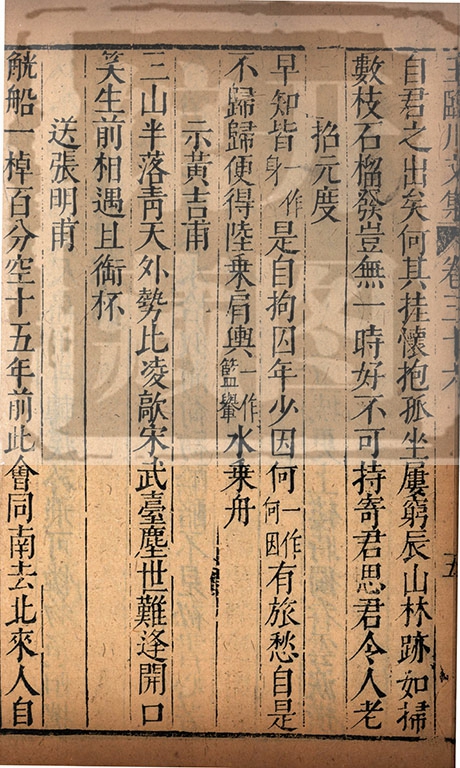 王臨川文集 卷三十六 五
自君之出矣何其挂懷抱孤坐屢窮辰山林跡如掃
數枝石榴發豈無一時好不可持寄君思君令人老
招元度
早知皆身一作是自拘囚年少因何何因一作有旅愁自是
不歸歸便得陸乘肩輿籃轝一作水乘舟
示黃吉甫
三山半落靑天外勢比凌歊宋武臺塵世難逢開口
笑生前相遇且銜杯
送張明甫
觥船一棹百分空十五年前此會同南去北來人自